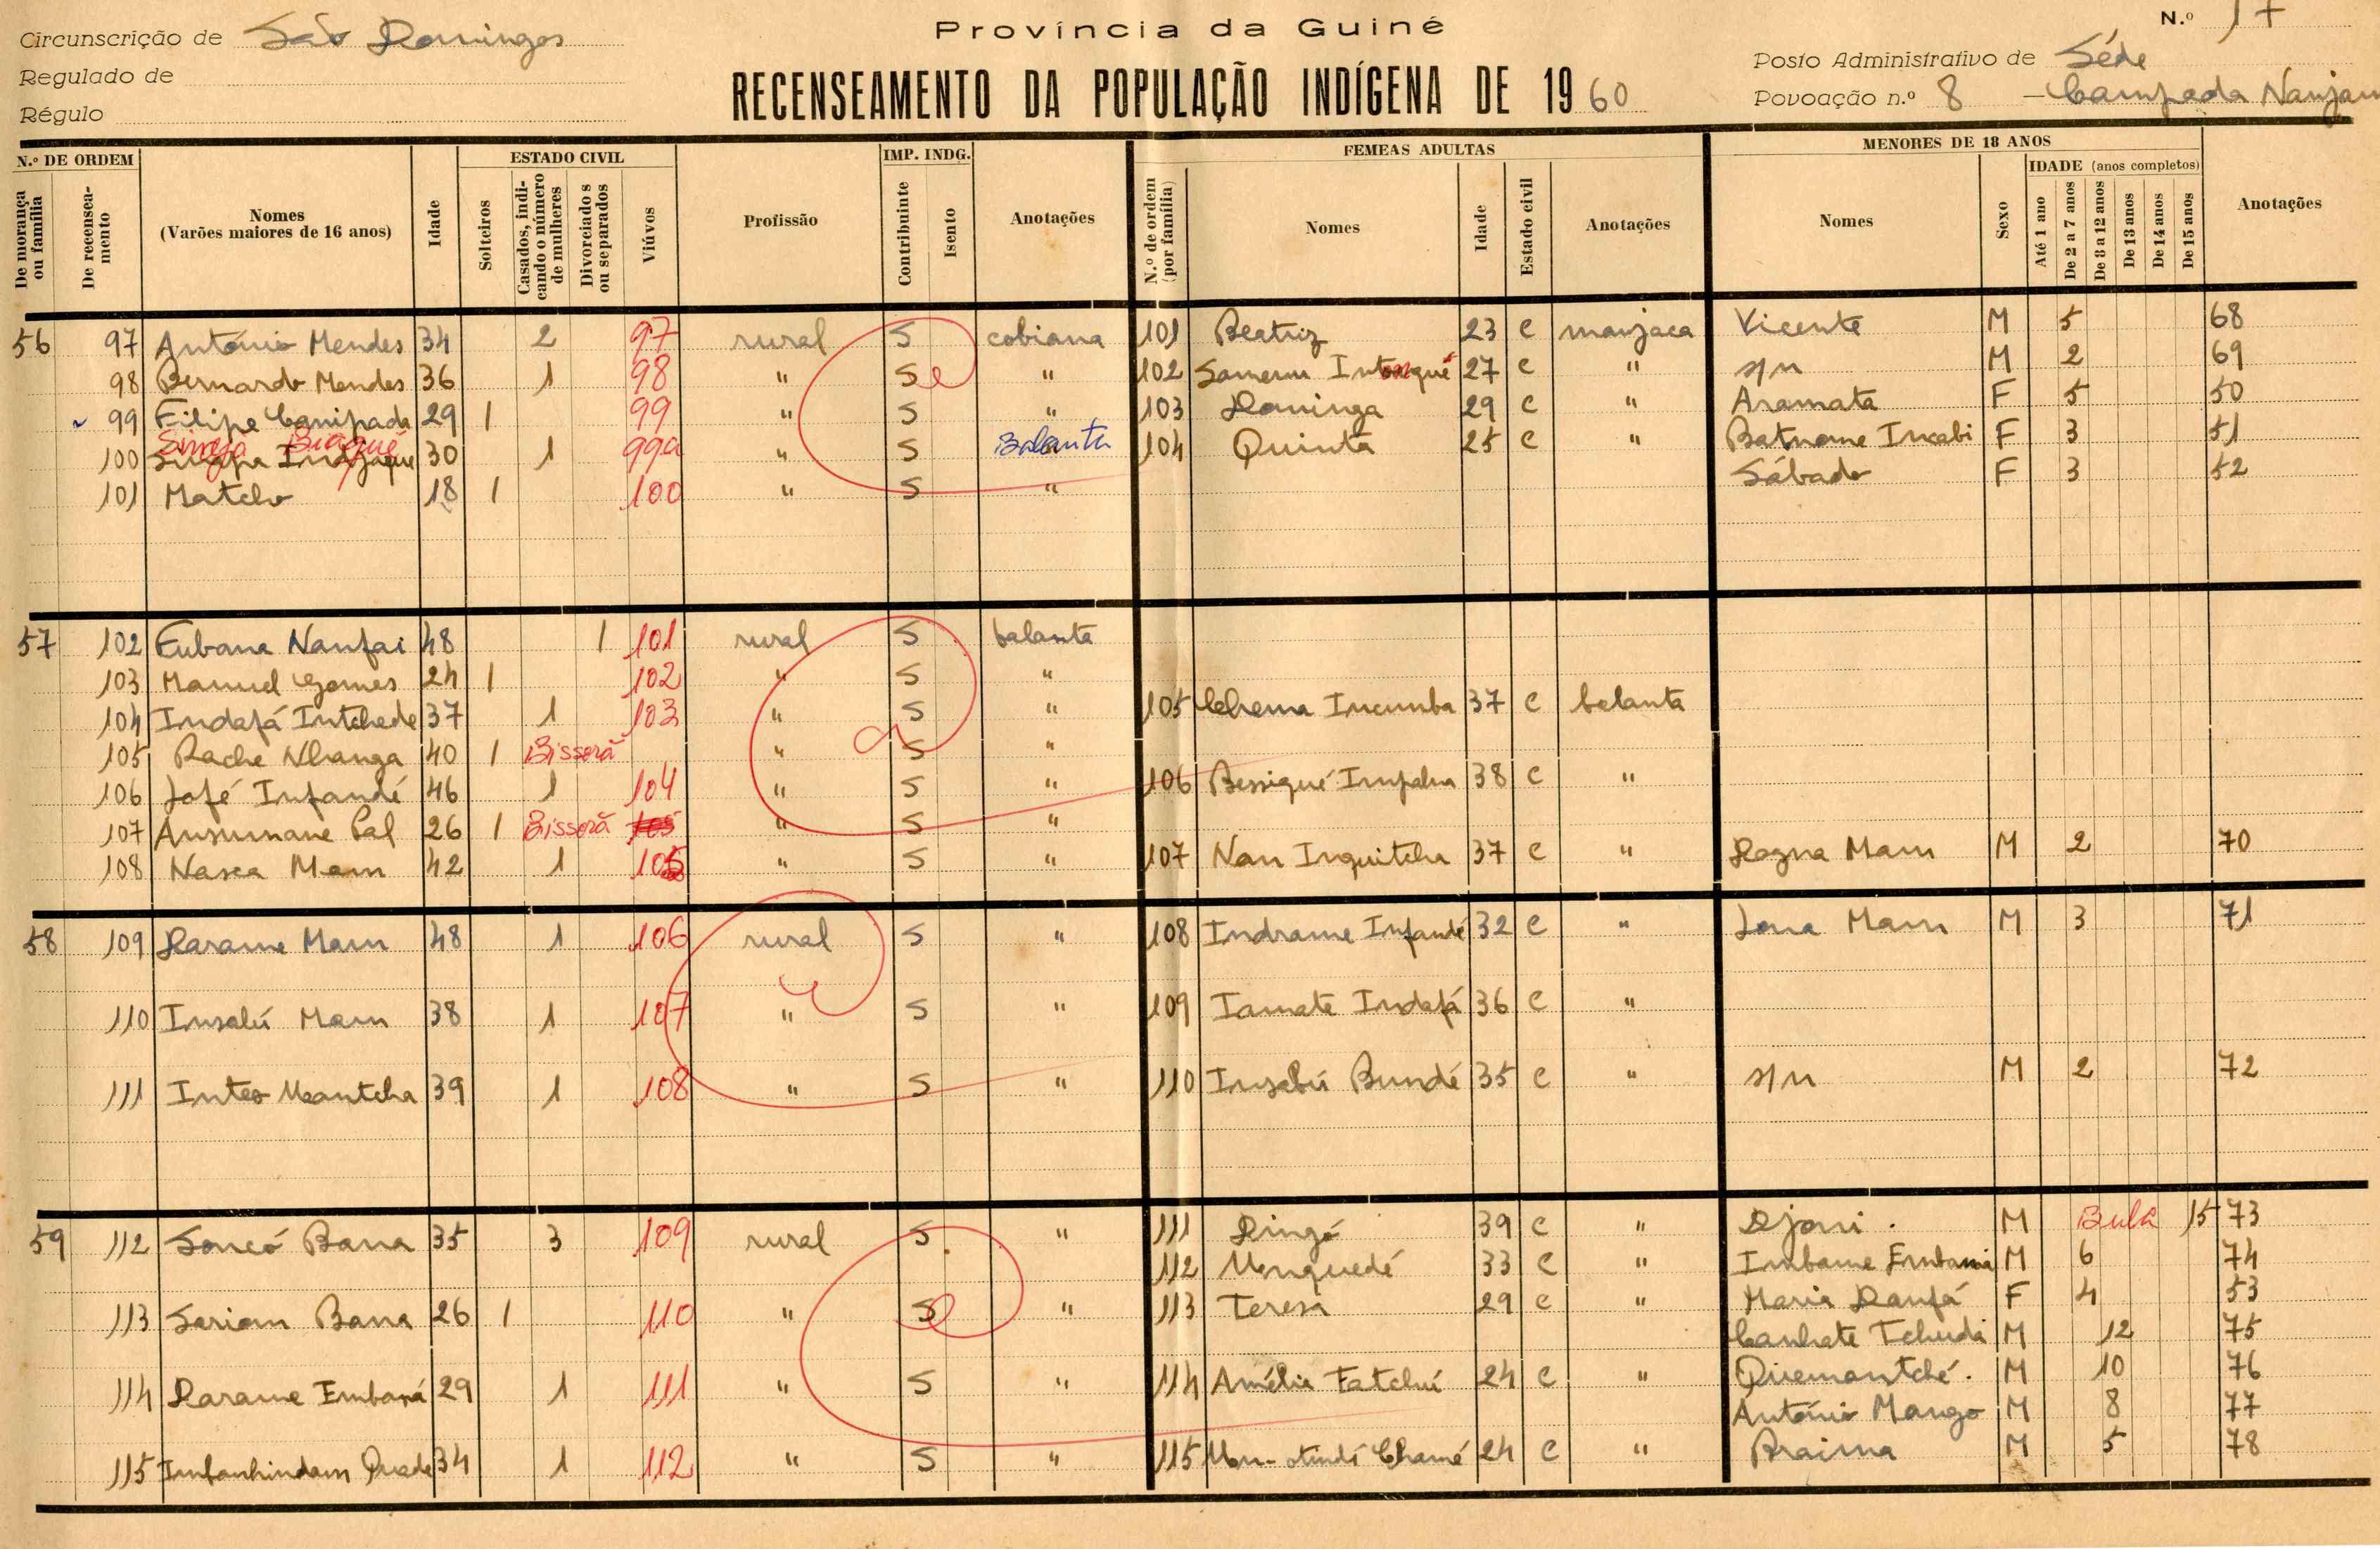 Província da Guiné
N.º 17
Circunscrição de São Domingos
Regulado de
Régulo
RECENSEAMENTO DA POPULAÇÃO INDÍGENA DE 1960
Posto Administrativo de Séde
Povoação n.º 8 — Campada Nanjan
N.º DE ORDEM
De morança ou família
De recenseamento
Nomes
(Varões maiores de 16 anos)
Idade
ESTADO CIVIL
Solteiros
Casados, indicando o número de mulheres
Divorciados ou separados
Viúvos
Profissão
IMP. INDG.
Contribuinte
Isento
Anotações
FEMEAS ADULTAS
N.º de ordem (por família)
Nomes
Idade
Estado civil
Anotações
MENORES DE 18 ANOS
Nomes
Sexo
IDADE (anos completos)
Até 1 ano
De 2 a 7 anos
De 8 a 12 anos
De 13 anos
De 14 anos
De 15 anos
Anotações
56 97 António Mendes 34 2 97 rural S cobiana 101 Beatriz 23 C manjaca Vicente M 5 68
98 Bernardo Mendes 36 1 98 " S " 102 27 C " s/n M 2 69
99 Filipe Campada 29 1 99 " S " 103 Dominga 29 C " Aramata F 5 50
100 30 1 99a " S Balanta 104 Quinta 25 C " Batname Incabi F 3 51
101 Matcho 18 1 100 " S " Sábado F 3 52
57 102 Fubana Nanfai 48 1 101 rural S balanta
103 Manuel Gomes 24 1 102 " S "
104 Indafá Intchede 37 1 103 " S " 105 Chema Incumba 37 C balanta
105 Rache Nhanga 40 1 Bissorã " S "
106 Jafé Infandé 46 1 104 " S " 106 Bessiqué Impalna 38 C "
107 Ansumane Cal 26 1 Bissorã 105 " S "
108 Nasca Mam 42 1 105 " S " 107 Nan Inquitcha 37 C " Dogna Mam M 2 70
58 109 Darame Mam 48 1 106 rural S " 108 Indrame Infandé 32 C " Jona Mam M 3 71
110 Insabú Mam 38 1 107 " S " 109 Iamate Indafá 36 C "
111 Inteo Mantcha 39 1 108 " S " 110 Insabú Bundé 35 C " s/n M 2 72
59 112 Soncó Bana 35 3 109 rural S " 111 Dingá 39 C " Djoni M Bula 15 73
112 Monquedé 33 C " Imbame Embaná M 6 74
113 Sariam Bana 26 1 110 " S " 113 Teresa 29 C " Maria Danfá F 4 53
Canhate Tchuda M 12 75
114 Darame Embaná 29 1 111 " S " 114 Amélia Fatchuí 24 C " Quemantché. M 10 76
António Mango M 8 77
115 Imfanhindam Quade 34 1 112 " S " 115 24 C " Braima M 5 78